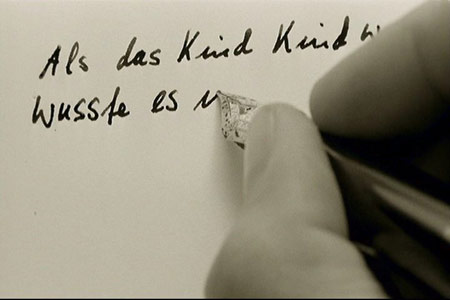 Als das Kind Kind w
wusste es n